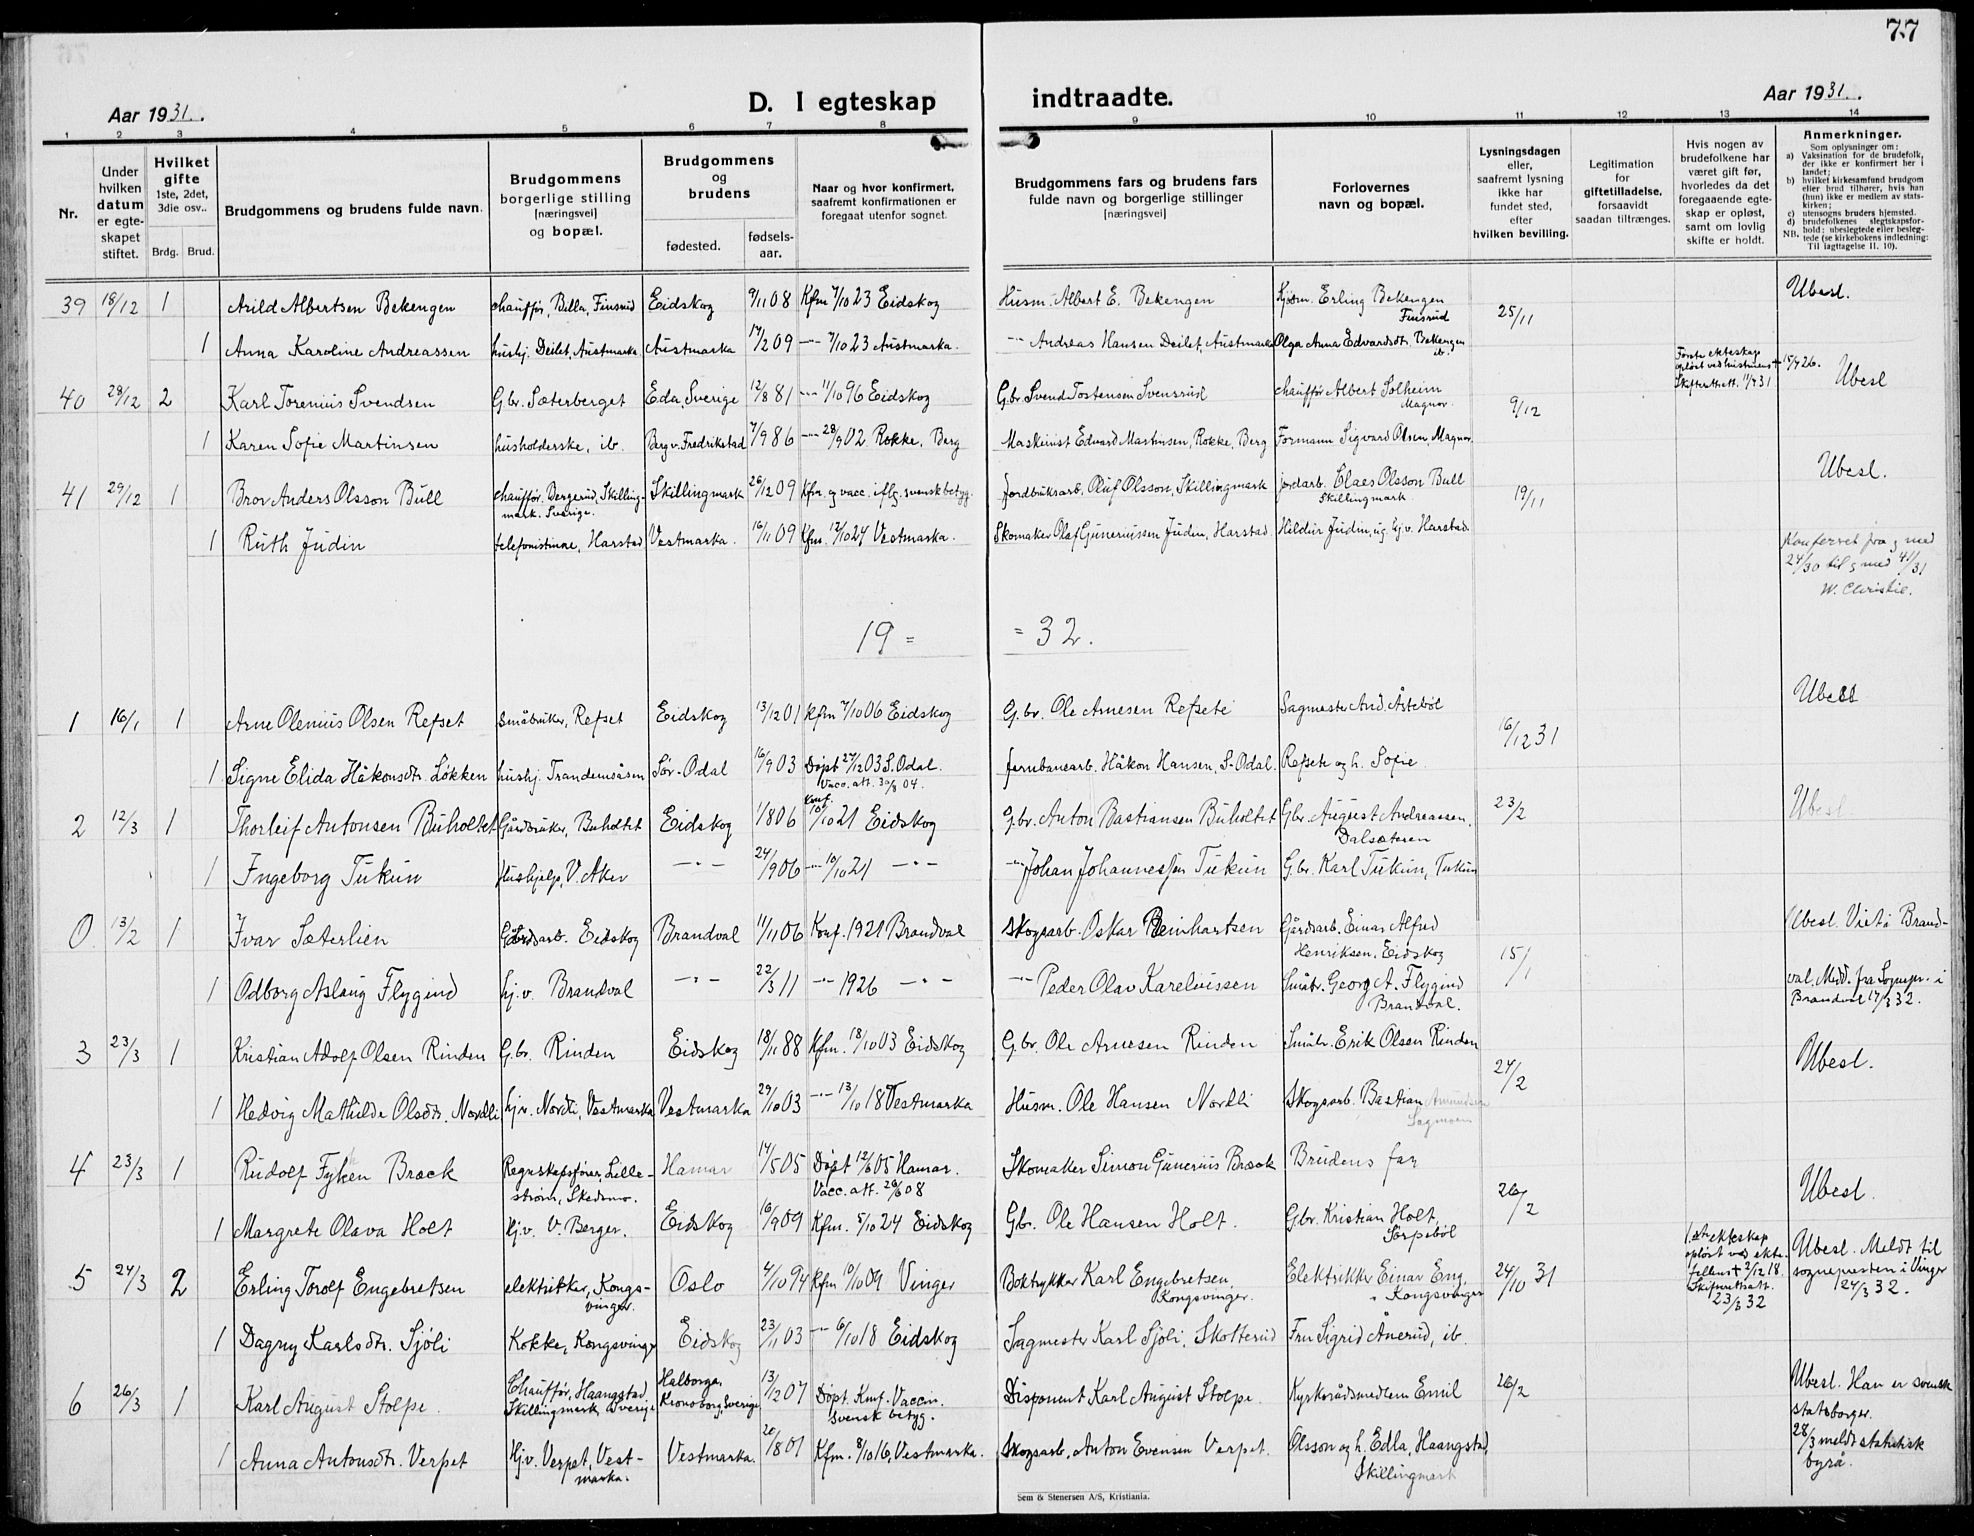 77
Aar 1931.
D. I egteskap
indtraadte.
Aar 1931.
1 2 3 4 5 6 7 8 9 10 11 12 13 14
Nr.
Under hvilken datum er egteskapet stiftet.
Hvilket gifte 1ste, 2det, 3die osv..
Brdg. Brud.
Brudgommens og brudens fulde navn.
Brudgommens borgerlige stilling [næringsvei] og bopæl.
Brudgommens og brudens
fødested.
fødselsaar.
Naar og hvor konfirmert, saafremt konfirmationen er foregaat utenfor sognet.
Brudgommens fars og brudens fars fulde navn og borgerlige stillinger [næringsvei]
Forlovernes navn og bopæl.
Lysningsdagen eller, saafremt lysning ikke har fundet sted, efter hvilken bevilling.
Legitimation for giftetilladelse, forsaavidt saadan tiltrænges.
Hvis nogen av brudefolkene har været gift før, hvorledes da det foregaaende egteskap er opløst, samt om lovlig skifte er holdt.
Anmerkninger.
Som oplysninger om:
a) Vaksination for de brudefolk, der ikke er konfirmert her i landet;
b) hvilket kirkesamfund brudgom eller brud tilhører, hvis han (hun) ikke er medlem av statskirken;
c) utensogns bruders hjemsted.
d) brudefolkenes slegtskapsforhold: ubeslegtede eller beslegtede (se kirkebokens indledning:
NB. Til iagttagelse II. 10).
39 18/12 1 Arild Albertsen Bekengen chauffør, Billa, Finsrud Eidskog 9/11 08 Kfm 7/10 23 Eidskog Husm. Albert E. Bekengen Kjørm. Erling Bekengen Finsrud 25/11 Ubesl.
1 Anna Karoline Andreassen hushj. Deilet, Austmarka Austmarka 17/2 09 -"- 7/10 23 Austmarka. -"- Andreas Hansen Deilet, Austmarka Olga Anna Edvardsdtr. Bekengen ib.
40 29/12 2 Karl Torenius Svendsen G.br. Sæterberget Eda, Sverige 12/8 81 -"- 11/10 96 Eidskog G.br. Svend Tostensen Svensrud chauffør Albert Solheim Magnor. 9/12 Første ekteskap opløst ved hustruens + 15/4 26. Skifterett. 11/4 31 Ubesl
1 Karen Sofie Martinsen husholderske, ib. Berg v. Fredrikstad 7/9 86 -"- 28/9 02. Rokke, Berg Maskinist Edvard Martinsen, Rokke, Berg Formann Sigvard Olsen, Magnor.
41 29/12 1 Bror Anders Olsson Bull chauffør. Bergerud, Skillingmark. Sverige. Skillingmark 26/12 09 Kfm. og vacc. iflg. svensk betyg. Jordbruksarb. Oluf Olsson, Skillingmark jordarb. Claes Olsson Bull Skillingmark. 19/11 Ubesl.
1 Ruth Judin telefonistinne, Harstad Vestmarka. 16/11 09 Kfm. 12/10 24 Vestmarka. Skomaker Olaf Guneriussen Juden, Harstad Hildur Judin, ug. hj.v. Harstad
Konferert fra og med 24/30 til og med 41/31 W. Christie.
19 = = 32.
1 16/1 1 Arne Olenius Olsen Refset småbruker, Refset Eidskog 13/12 01 kfm 7/10 06 Eidskog G.br. Ole Arnesen Refseti Sagmester And. Åstebøl 16/12 31 Ubesl
1 Signe Elida Håkonsdtr. Løkken hushj. Trandemsåsen Sør-Odal 16/9 03 Døpt 27/12 03 S. Odal. Vacc. att. 30/8 04. Jernbanearb. Håkon Hansen, S-Odal. Refsete og h. Sofie.
2 12/3 1 Thorleif Antonsen Buholtet Gårdbruker, Buholtet Eidskog 1/8 06 Konf. 10/10 21 Eidskog G.br. Anton Bastiansen Buholtet Gbr. August Andreassen. Dalsæteren 23/2 Ubesl
1 Ingeborg Tukun Hushjelp, V. Aker -"- 24/9 06 -"- 10/10 21 -"- -"- Johan Johannessen Tukun G.br. Karl Tukun, Tukun
0. 13/2 1 Ivar Sæterlien Gårdsarb. Eidskog Brandval 11/11 06 Konf. 1921 Brandval Skogsarb. Oskar Reinhartsen Gårdsarb. Einar Alfred Henriksen, Eidskog 15/1 Ubesl. Viet i Brandval. Medd. fra Sognepr. i Brandval 17/3 32.
1 Odborg Aslaug Flygind hj.v. Brandval -"- 22/3 11 -"- 1926 -"- -"- Peder Olav Kareliussen Småbr. Georg A. Flygind Brandval.
3 23/3 1 Kristian Adolf Olsen Rinden G.br. Rinden Eidskog 18/11 88 Kfm. 18/10 03 Eidskog G.br. Ole Arnesen Rinden Småbr. Erik Olsen Rinden 24/2 Ubesl.
1 Hedvig Mathilde Olsdtr. Nordli hj.v. Nordli, Vestmarka Vestmarka 29/10 03 -"- 13/10 18 Vestmarka Husm. Ole Hansen Nordli Skogsarb. Bastian Amundsen Sagmoen
4 23/3 1 Rudolf Fyken Bræck Regnskapsfører, Lillestrøm, Skedsmo. Hamar 14/5 05 Døpt 12/6 05 Hamar. Vacc. att. 20/6 08 Skomaker Simon Gunerius Bræck Brudens far 26/2 Ubesl.
1 Margrete Olava Holt Hj.v. V. Berger. Eidskog 16/9 09 Kfm. 5/10 24 Eidskog Gbr. Ole Hansen Holt. Gbr. Kristian Holt, Torpebøl
5 24/3 2 Erling Torolf Engebretsen elektriker, Kongsvinger. Oslo 4/10 94 Kfm 10/10 09 Vinger Boktrykker Karl Engebretsen, Kongsvinger. Elektrikker Einar Eng, Kongsvinger 24/10 31 1ste ekteskap opløst ved ektefellens + 2/12 18. Skifterettsatt. 23/3 32 Ubesl. Meldt til sognepresten i Vinger 24/3 32.
1 Dagny Karlsdtr. Sjøli Kokke, Kongsvinger Eidskog 23/11 03 -"- 6/10 18 Eidskog Sagmester Karl Sjøli, Skotterud Fru Sigrid Ånerud, ib.
6 26/3 1 Karl August Stolpe. Chauffør, Haangstad Skillingmark, Sverige Kronoborg, Sverige 13/12 07 Døpt. Konf. Vaccin. svensk betyg. Disponent Karl August Stolpe. Kyrkorådsmedlem Emil 26/2 Ubesl. Han er svensk statsborger. 28/3 meldt statistisk byrå.
1 Anna Antonsdtr. Verpet Hj.v. Verpet, Vestmarka. Vestmarka. 20/8 01 Kfm. 8/10 16, Vestmarka. Skogsarb. Anton Evensen Verpet. Olsson og h. Edla, Haangstad, Skillingmark
Sem & Stenersen A/S, Kristiania.